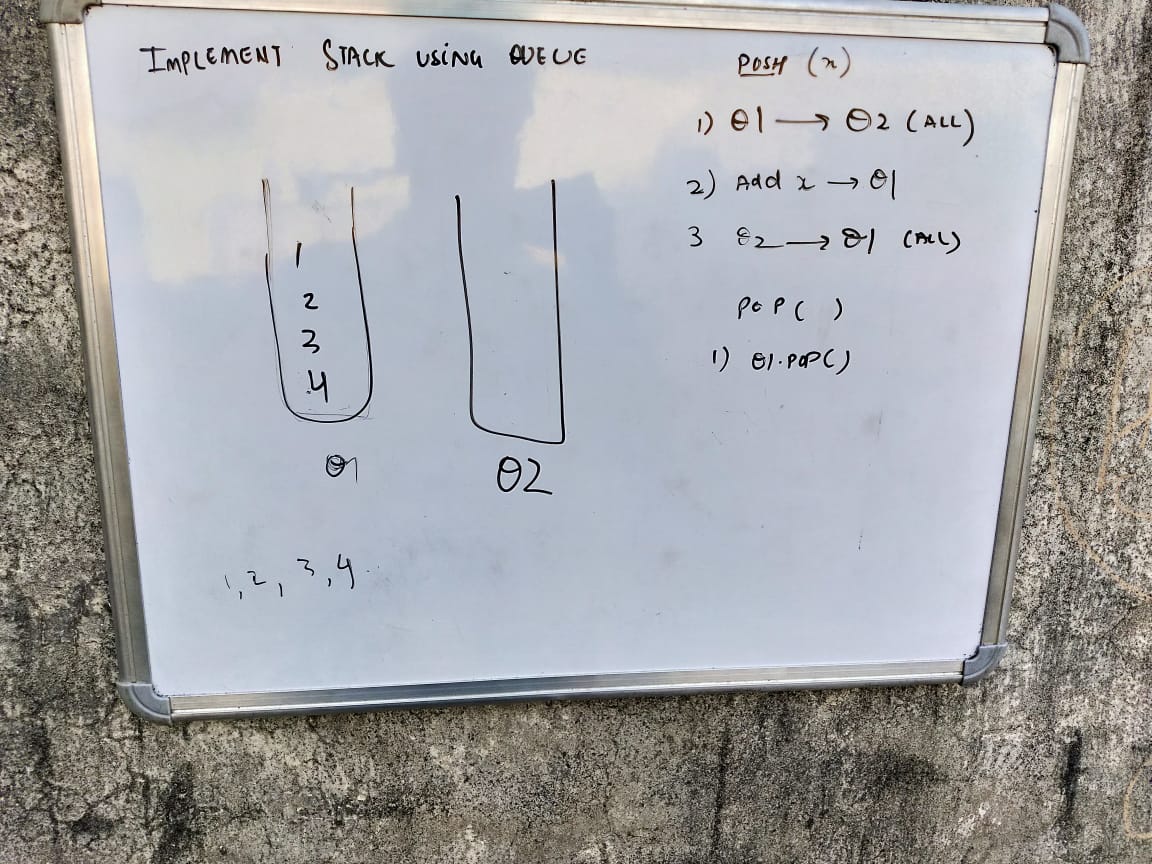 IMPLEMENT STACK USING QUEUE
1
2
3
4
Q1
Q2
1, 2, 3, 4
PUSH (x)
1) Q1 → Q2 (ALL)
2) Add x → Q1
3 Q2 → Q1 (ALL)
POP ( )
1) Q1.POP()